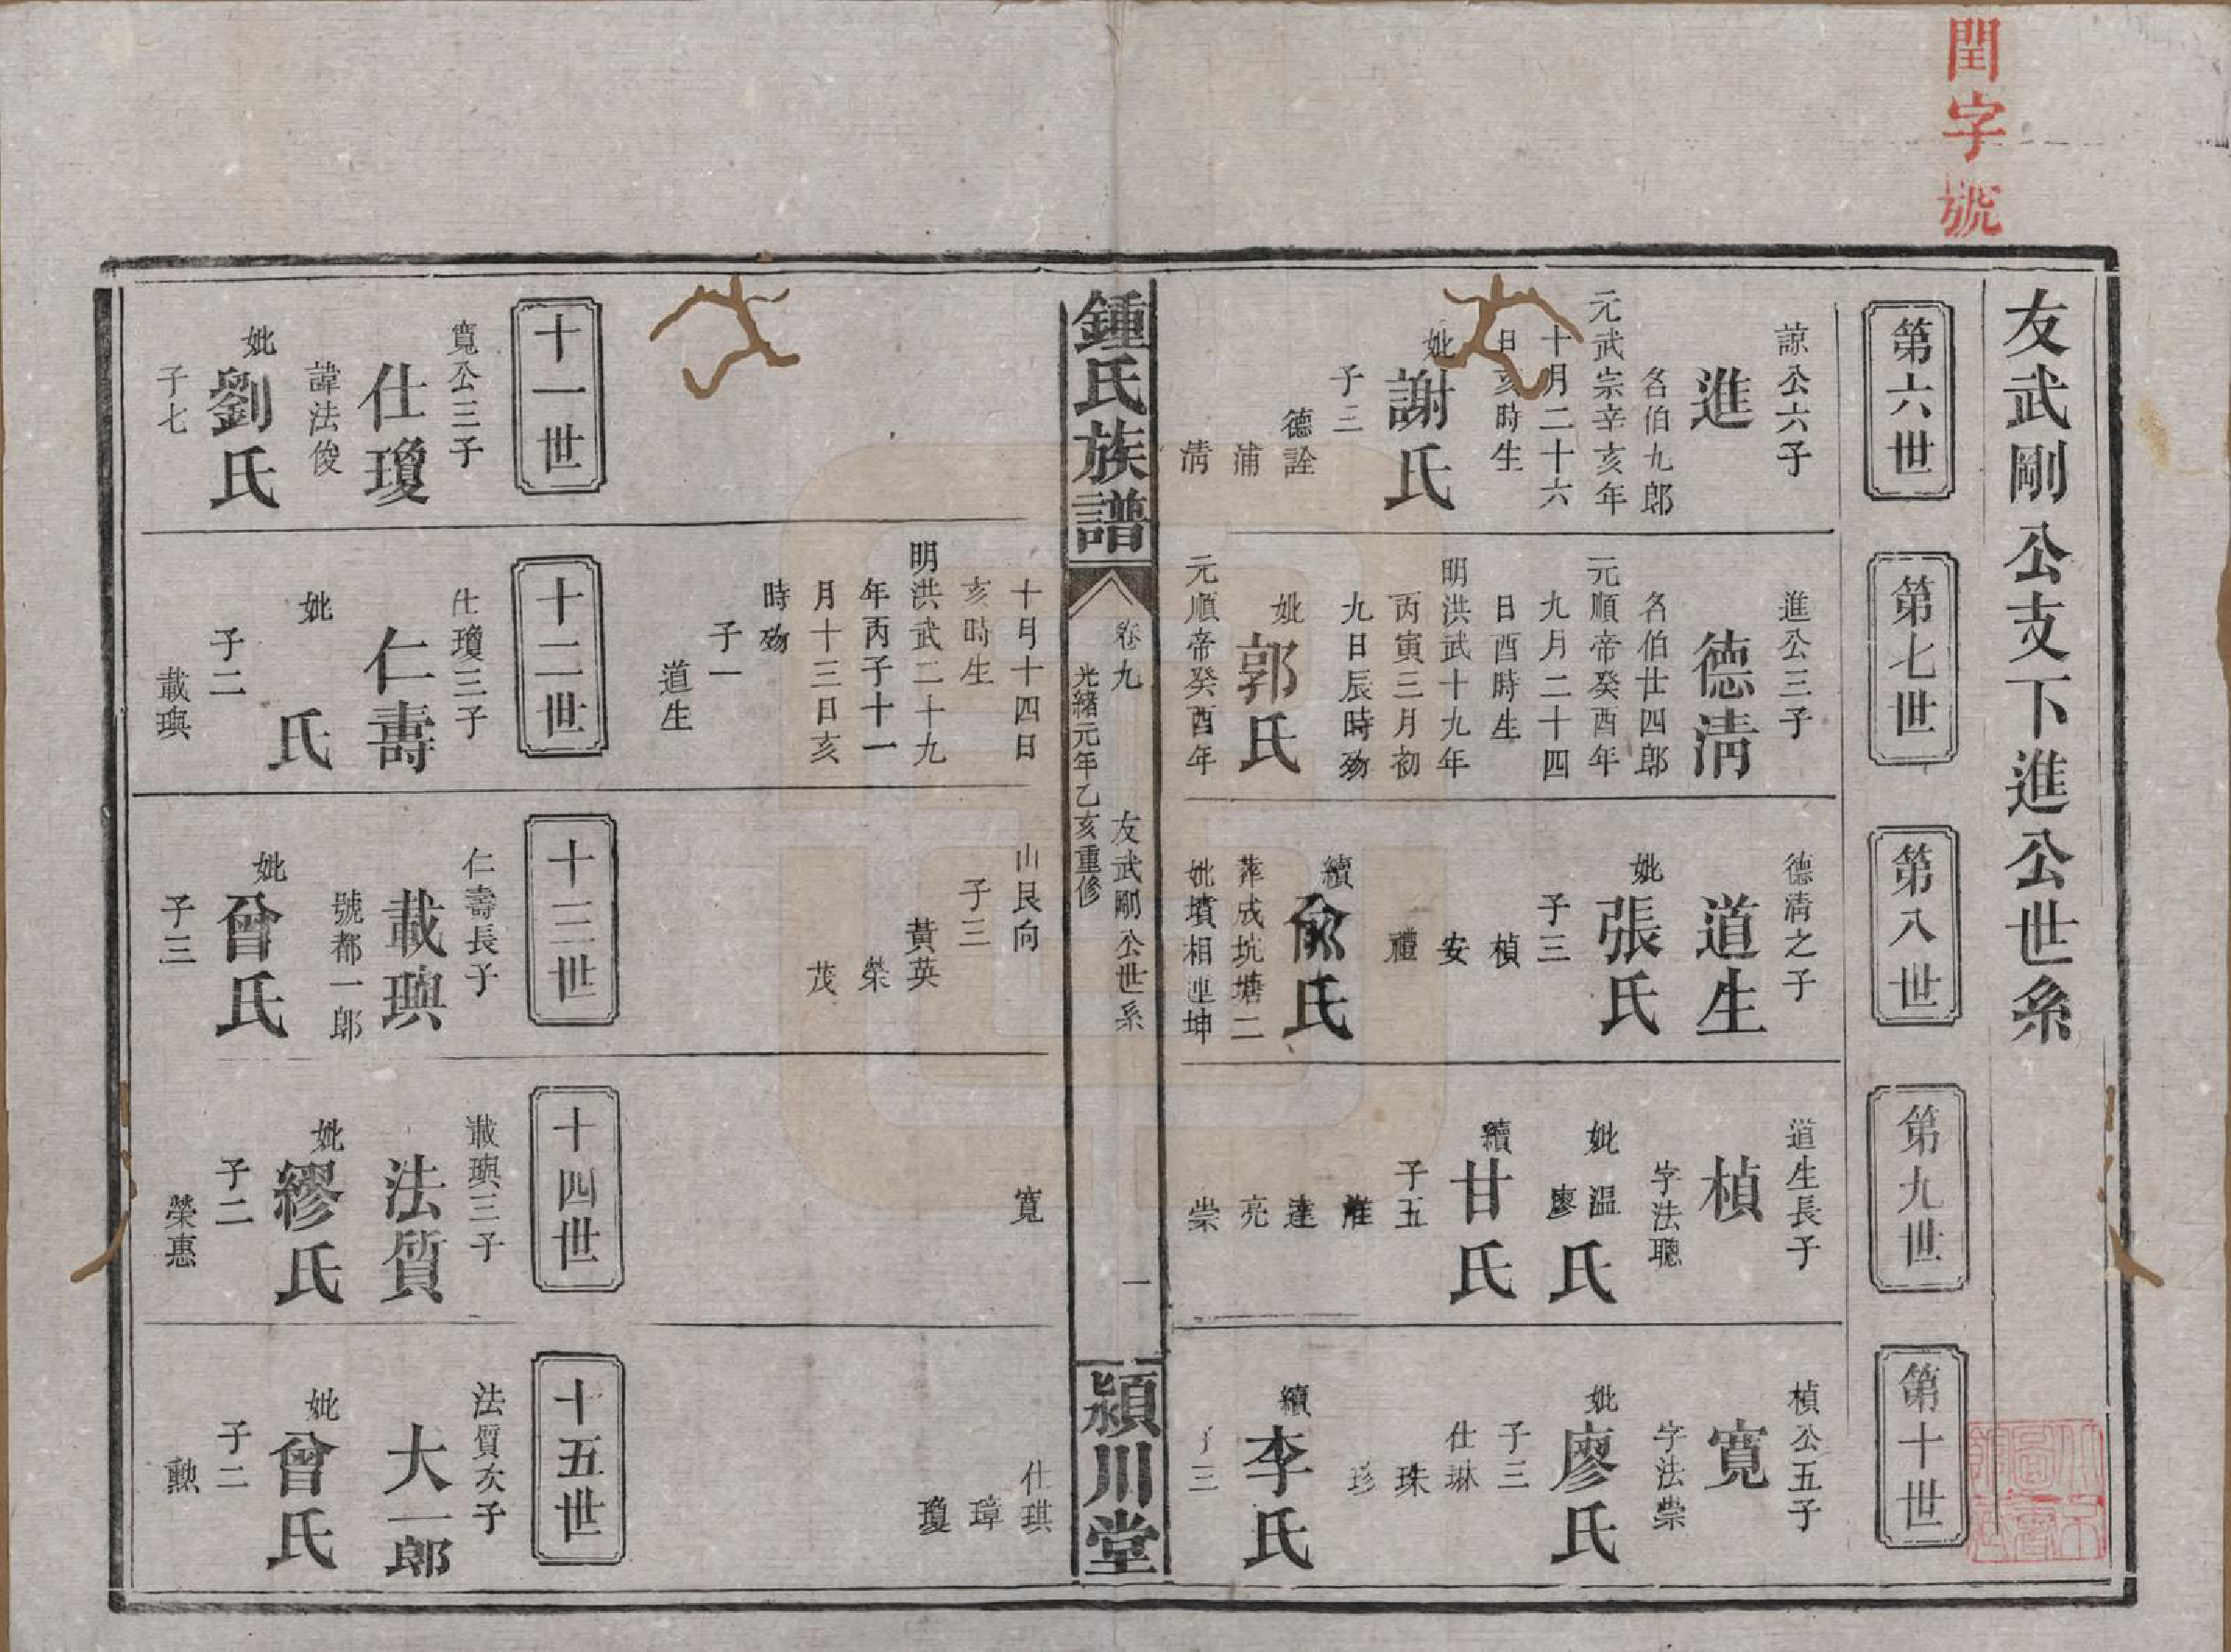 閏字號
友武剛公支下進公世系
第六世
諒公六子
進
名伯九郎
元武宗辛亥年
十月二十六
日亥時生
妣
謝氏
子三
德詮
浦
淸
第七世
進公三子
德淸
名伯廿四郎
元順帝癸酉年
九月二十四
日酉時生
明洪武十九年
丙寅三月初
九日辰時歿
妣
郭氏
元順帝癸酉年
第八世
德淸之子
道生
妣
張氏
子三
楨
安
禮
續
俞氏
葬成坑塘二
妣墳相連坤
第九世
道生長子
楨
字法聰
妣
溫
廖
氏
續
甘氏
子五
達
亮
崇
第十世
楨公五子
寬
字法崇
妣
廖氏
子三
仕琳
珠
珍
續
李氏
子三
鍾氏族譜
卷九
友武剛公世系
光緒元年乙亥重修
一
潁川堂
十月十四日
亥時生
明洪武二十九
年丙子十一
月十三日亥
時歿
子一
道生
山艮向
子三
黃英
榮
茂
寬
仕琪
璋
瓊
十一世
寬公三子
仕瓊
諱法俊
妣
劉氏
子七
十二世
仕瓊三子
仁壽
妣
氏
子二
載璵
十三世
仁壽長子
載璵
號都一郎
妣
曾氏
子三
十四世
載璵三子
法質
妣
繆氏
子二
榮惠
十五世
法質次子
大一郎
妣
曾氏
子二
勲